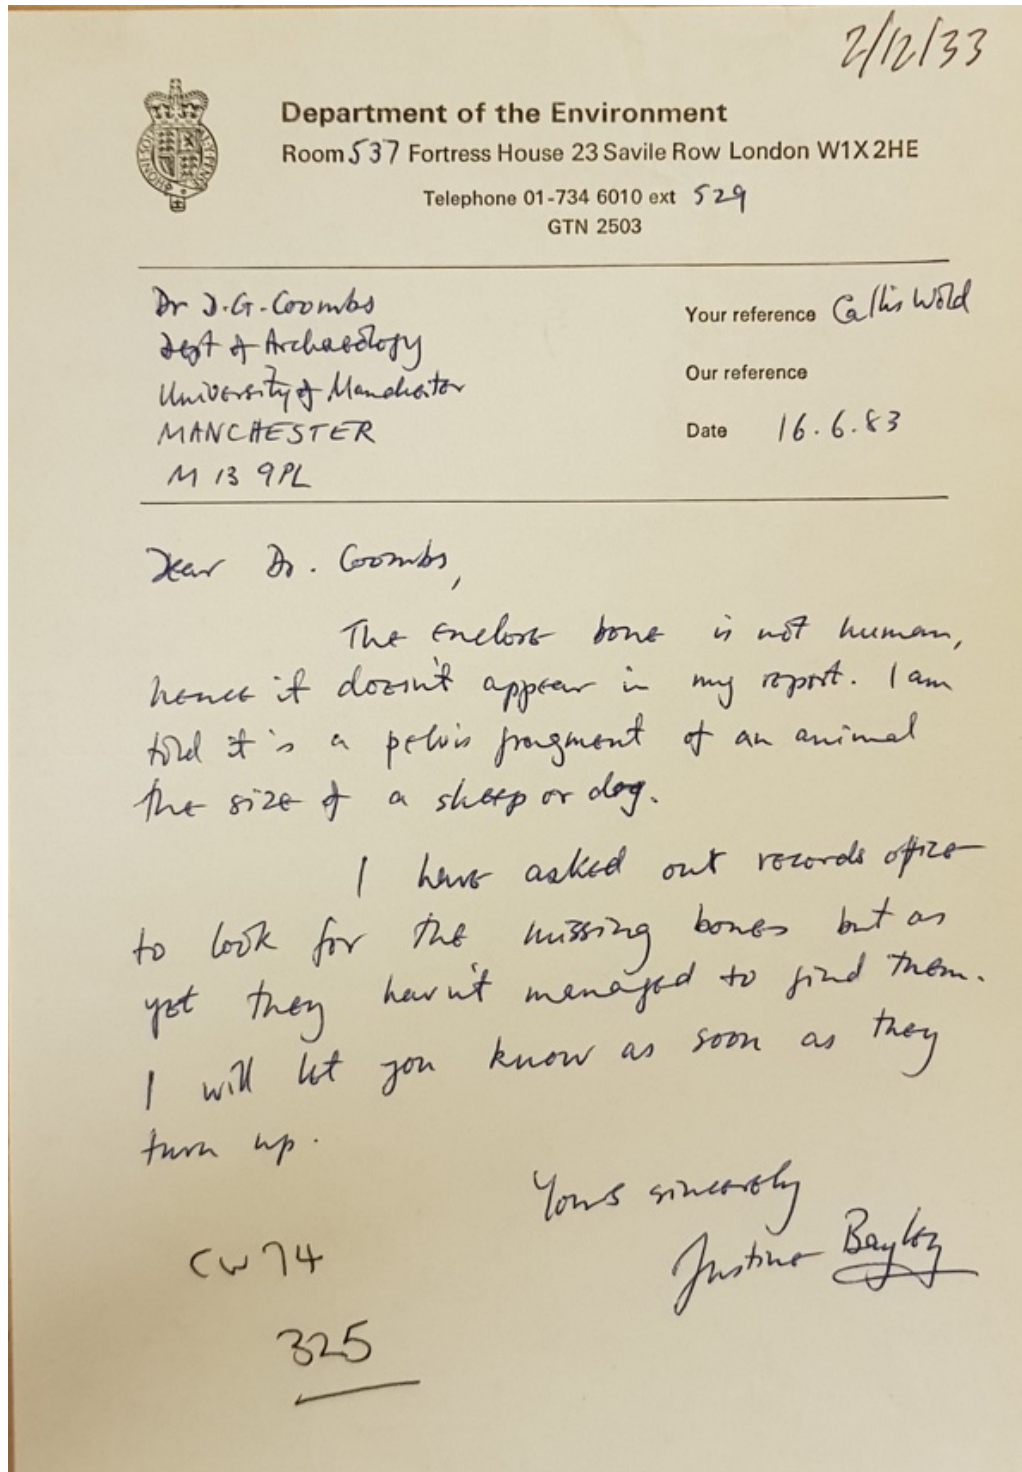 2/12/33
Department of the Environment
Room 537 Fortress House 23 Savile Row London W1X 2HE
Telephone 01-734 6010 ext 529
GTN 2503
Dr D.G. Coombs
Dept of Archaeology
University of Manchester
MANCHESTER
M 13 9PL
Your reference Callis Wold
Our reference
Date 16.6.83
Dear Dr. Coombs,
The enclose bone is not human,
hence it doesn't appear in my report. I am
told it is a pelvis fragment of an animal
the size of a sheep or dog.
I have asked out records office
to look for the missing bones but as
yet they havn't managed to find them.
I will let you know as soon as they
turn up.
Yours sincerely
Justine Bayley
CW 74
325